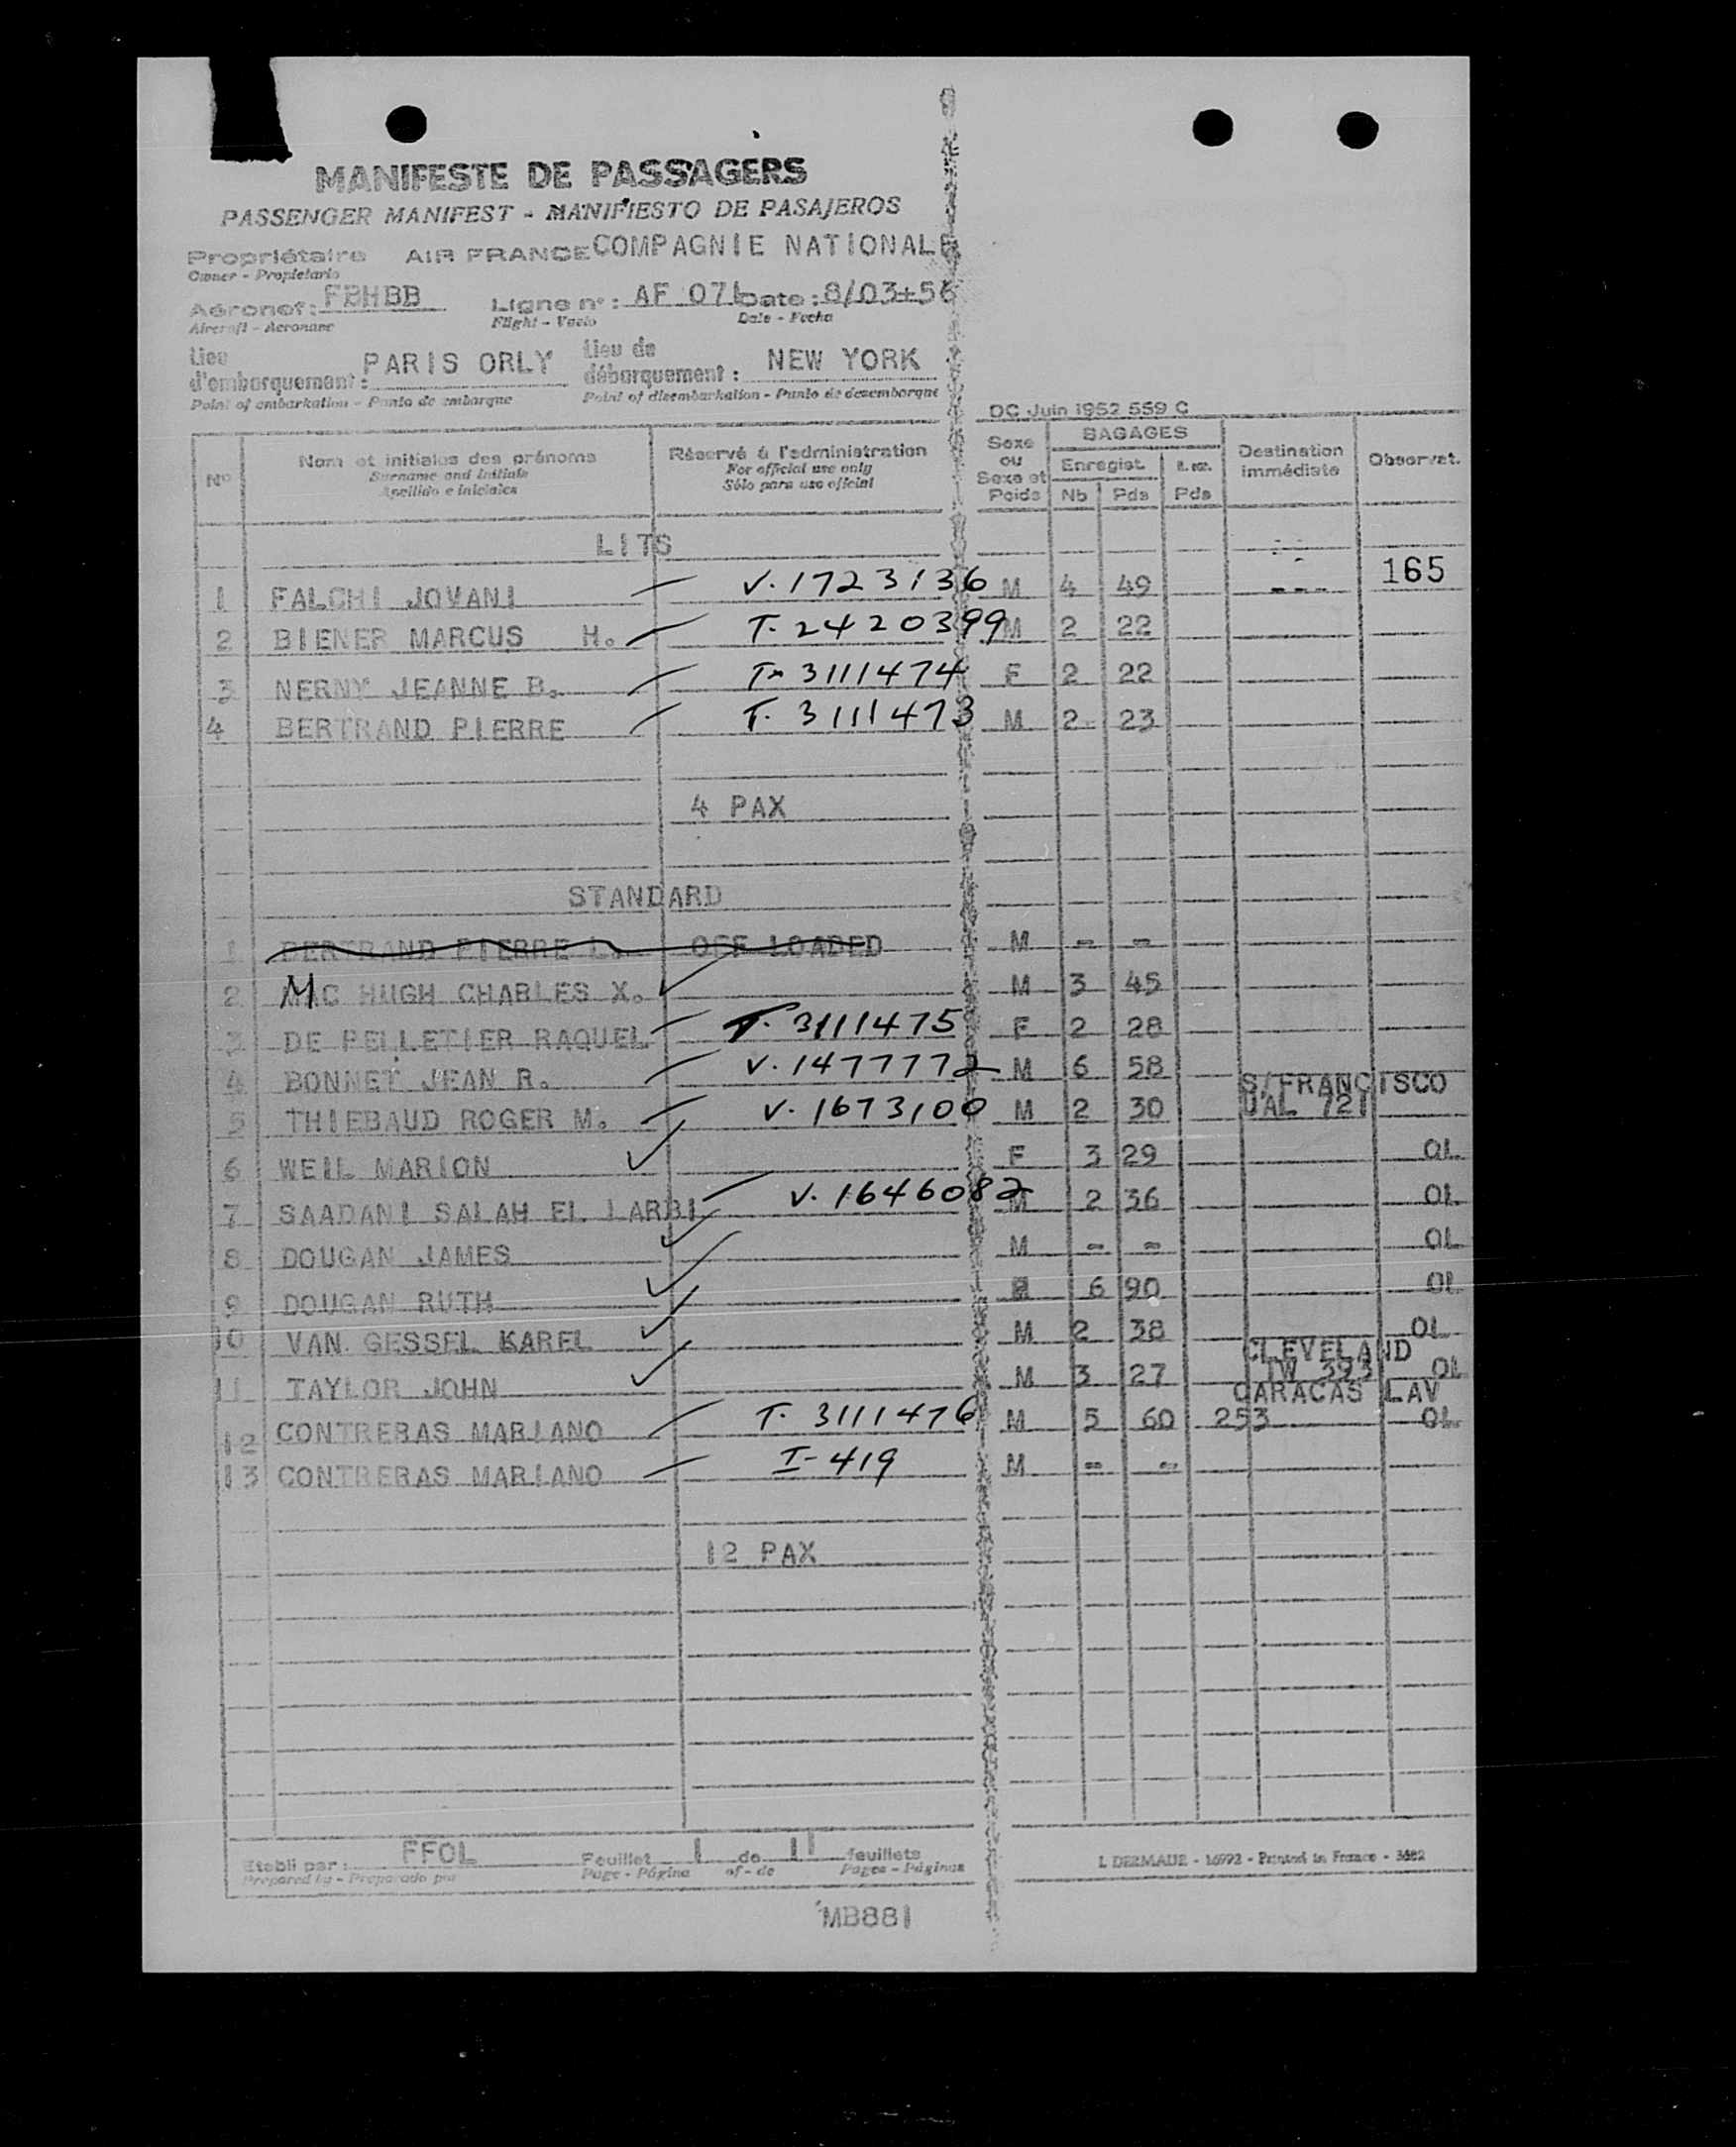 MANIFESTE DE PASSAGERS
PASSENGER MANIFEST - MANIFIESTO DE PASAJEROS
Propriétaire AIR FRANCE COMPAGNIE NATIONALE
Owner - Propietario
Aéronef: FBHBB Ligne n°: AF 071 Date: 8/03+56
Aircraft - Aeronave Flight - Vuelo Date - Fecha
Lieu d'embarquement: PARIS ORLY Lieu de débarquement: NEW YORK
Point of embarkation - Punto de embarque Point of disembarkation - Punto de desembarque
DC Juin 1952 559 C
N° Nom et initiales des prénoms Réservé à l'administration Sexe ou Sexe et Poids BAGAGES Enregist. Nb Pds Pds Destination immédiate Observat.
Surname and initials For official use only
Apellido e iniciales Sólo para uso oficial
LITS
165
1 FALCHI JOVANI V. 1723136 M 4 49 ---
2 BIENER MARCUS H. T. 2420399 M 2 22
3 NERNY JEANNE B. T- 3111474 F 2 22
4 BERTRAND PIERRE T. 3111473 M 2 23
4 PAX
STANDARD
1 BERTRAND PIERRE L. OFF LOADED M - -
2 MAC HUGH CHARLES X. M 3 45
3 DE PELLETIER RAQUEL T. 3111475 F 2 28
4 BONNET JEAN R. V. 1477772 M 6 58
S/FRANCISCO
5 THIEBAUD ROGER M. V. 1673100 M 2 30 UAL 721
6 WEIL MARION F 3 29 OL
7 SAADANI SALAH EL LARBI V. 1646082 M 2 36 OL
8 DOUGAN JAMES M - - OL
9 DOUGAN RUTH 6 90 OL
10 VAN GESSEL KAREL M 2 38 OL
CLEVELAND
11 TAYLOR JOHN M 3 27 TW 393 OL
CARACAS LAV
12 CONTRERAS MARIANO T. 3111476 M 5 60 253 OL
13 CONTRERAS MARIANO I-419 M - -
12 PAX
Etabli par: FFOL Feuillet 1 de 11 feuillets
Prepared by - Preparado por Page - Página of - de Pages - Páginas
L DERMAUX - 16992 - Printed in France - 3682
MB881